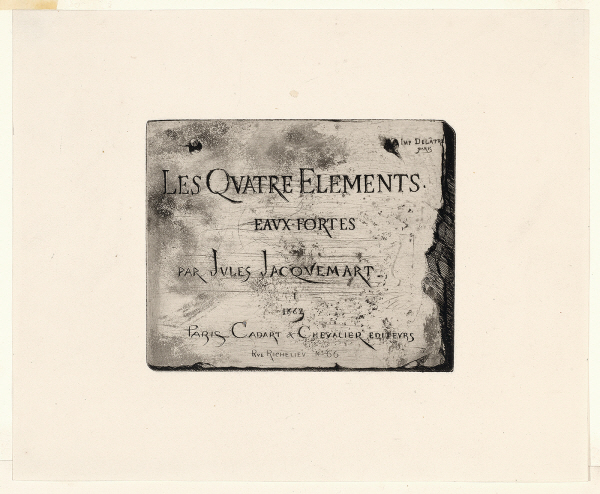 Imp Delâtre
Paris
LES QVATRE ELEMENTS.
EAVX-FORTES
PAR JVLES JACQVEMART
1862
PARIS CADART & CHEVALIER EDITEVRS
RVE RICHELIEV No 66